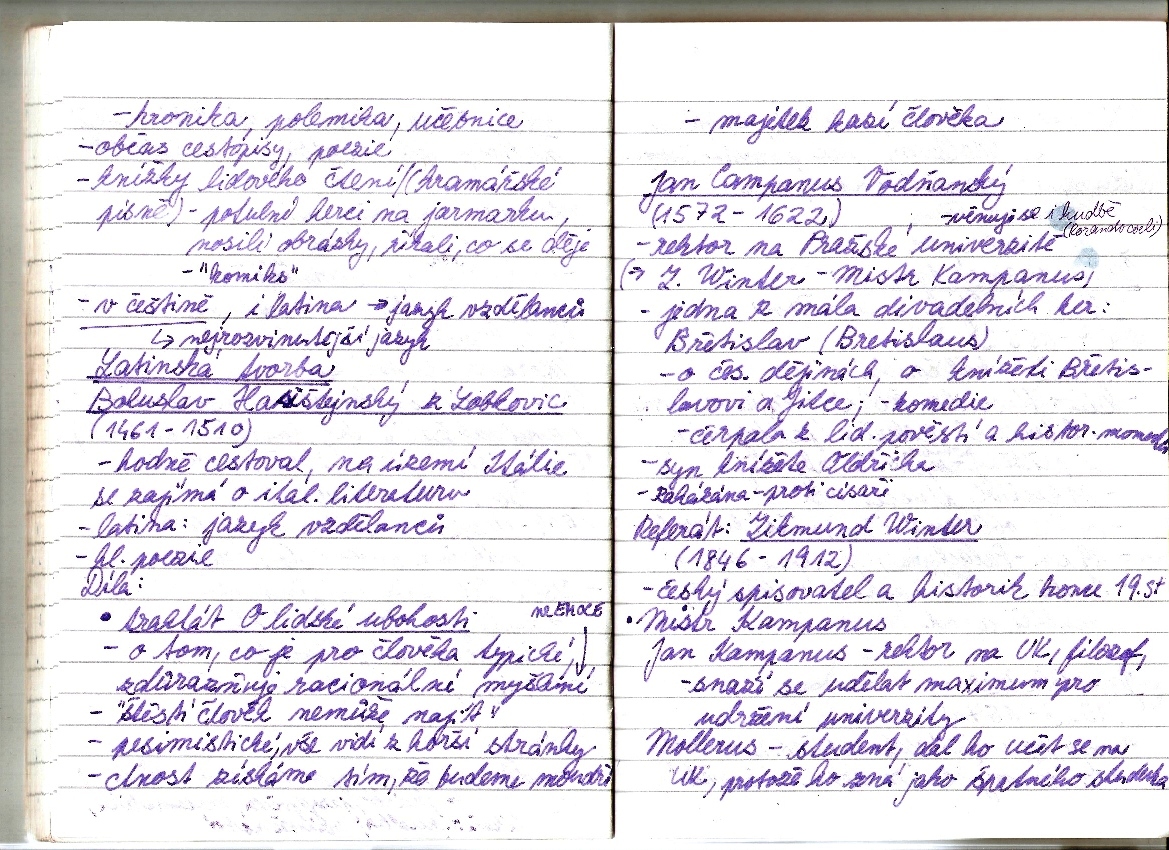 - kronika, polemika, učebnice
- občas cestopisy, poezie
- knížky lidového čtení (kramářské
písně) - potulní herci na jarmarku,
nosili obrázky, říkali, co se děje
- "komiks"
- v češtině, i latina → jazyk vzdělanců
↳ nejrozvinutější jazyk
Latinská tvorba
Bohuslav Hasištejnský z Lobkovic
(1461 - 1510)
- hodně cestoval, na území Itálie
se zajímá o ital. literaturu
- latina: jazyk vzdělanců
- hl. poezie
Díla:
• traktát O lidské ubohosti
neEMOCE
- o tom, co je pro člověka typické,
zdůrazňuje racionální myšlení
- "štěstí člověk nemůže najít"
- pesimistické, vše vidí z horší stránky
- ctnost získáme tím, že budeme moudří
- majetek kazí člověka
Jan Campanus Vodňanský
(1572 - 1622)
- věnuje se i hudbě
(Rorando coeli)
- rektor na Pražské univerzitě
(→ Z. Winter - Mistr Kampanus)
- jedna z mála divadelních her:
Břetislav (Bretislaus)
- o čes. dějinách, o knížeti Břetis-
lavovi a Jitce; - komedie
- čerpala z lid. pověstí a histor. momentů
- syn knížete Oldřicha
- zakázána - proti císaři
Referát: Zikmund Winter
(1846 - 1912)
- český spisovatel a historik konce 19. st
• Mistr Kampanus
Jan Kampanus - rektor na UK, filozof,
- snaží se udělat maximum pro
udržení univerzity
Mollerus - student, dal ho učit se na
UK, protože ho zná jako špatného studenta